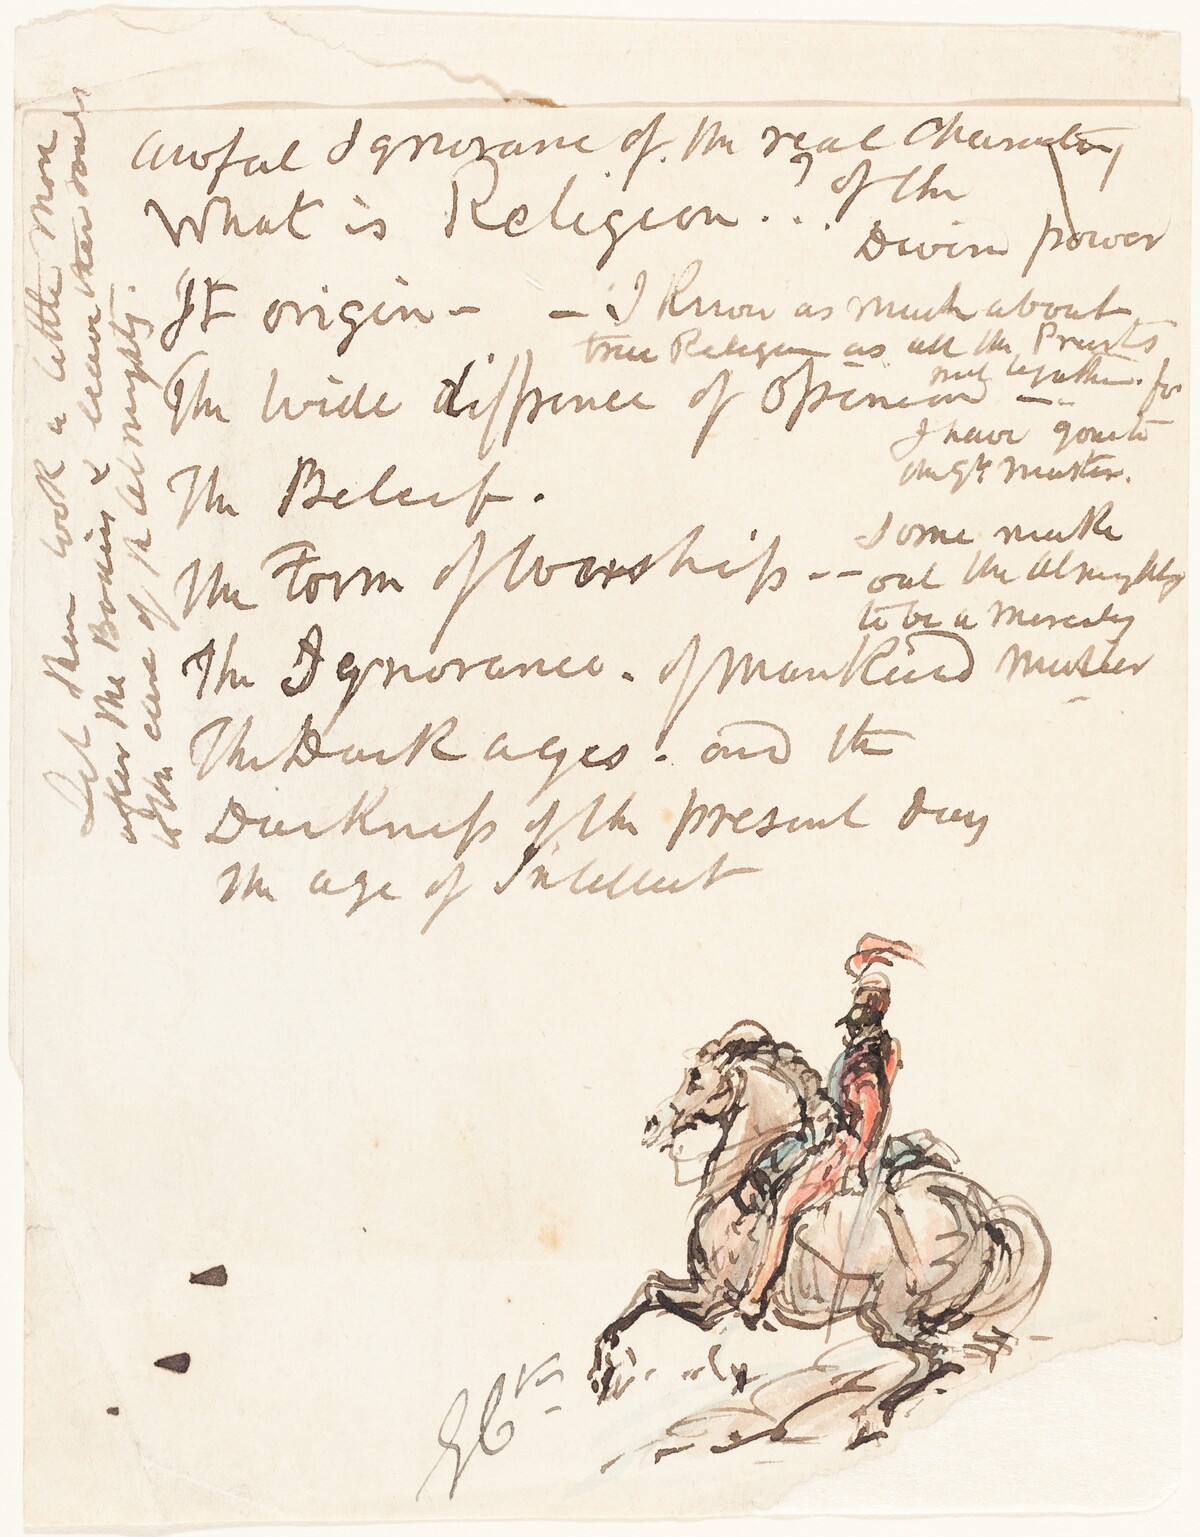 Awful Ignorance of the real Character
of the
Divine power
What is Religion . . ?
It origin – – I know as much about
true Religion as all the Priests
put together. for
I have gone to
the Gt Master.
The wide diffrence of Opinion –
The Beleif.
The Form of Worship – –
Some make
out the Almighty
to be a Merciless
Master
The Ignorance. of Mankind
The Dark ages. and the
Darkness of the present day
the age of Intellect
Let them look a little more
after the Bodies & leave their souls
to the care of the Almighty.